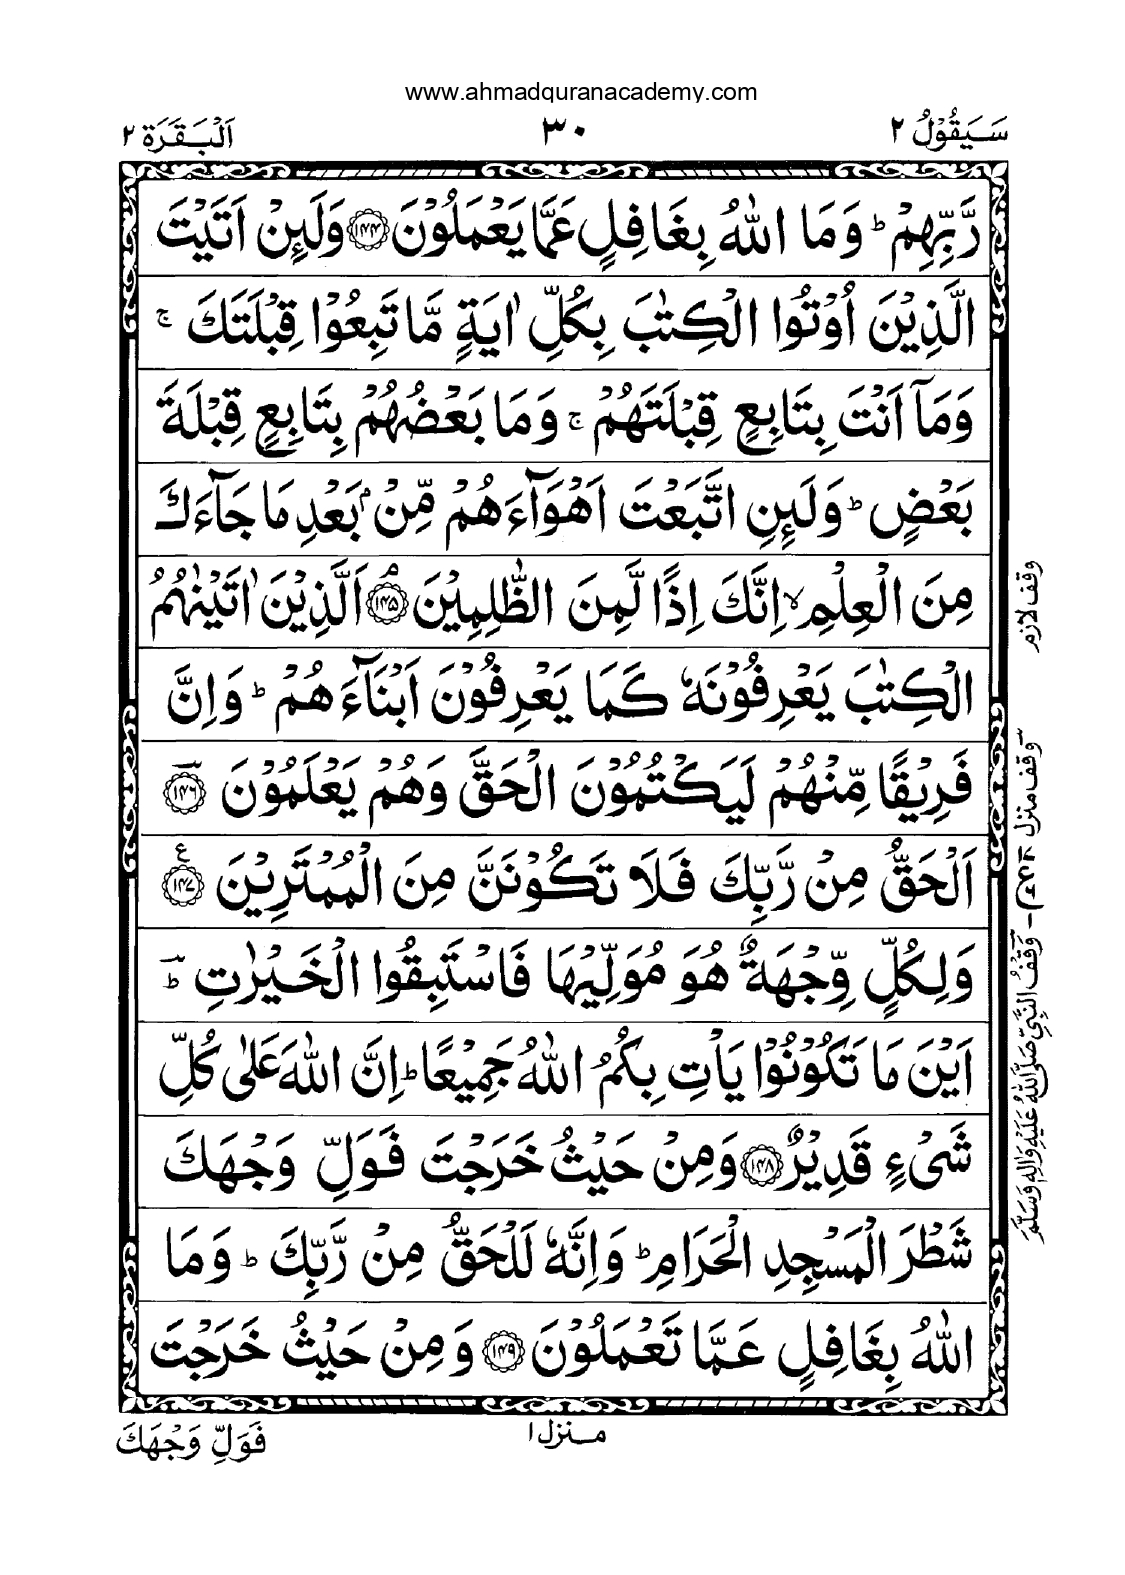 www.ahmadquranacademy.com
سَيَقُوْلُ ٢
٣٠
اَلْبَقَرَة ٢
رَّبِّهِمْ ؕ وَمَا اللّٰهُ بِغَافِلٍ عَمَّا يَعْمَلُوْنَ ﴿۱۴۴﴾ وَلَئِنْ اَتَيْتَ
الَّذِيْنَ اُوْتُوا الْكِتٰبَ بِكُلِّ اٰيَةٍ مَّا تَبِعُوْا قِبْلَتَكَ ۚ
وَمَآ اَنْتَ بِتَابِعٍ قِبْلَتَهُمْ ۚ وَمَا بَعْضُهُمْ بِتَابِعٍ قِبْلَةَ
بَعْضٍ ؕ وَلَئِنِ اتَّبَعْتَ اَهْوَآءَهُمْ مِّنْۢ بَعْدِ مَا جَآءَكَ
مِنَ الْعِلْمِ ۙ اِنَّكَ اِذًا لَّمِنَ الظّٰلِمِيْنَ ﴿۱۴۵﴾ۘ اَلَّذِيْنَ اٰتَيْنٰهُمُ
الْكِتٰبَ يَعْرِفُوْنَهٗ كَمَا يَعْرِفُوْنَ اَبْنَآءَهُمْ ؕ وَاِنَّ
فَرِيْقًا مِّنْهُمْ لَيَكْتُمُوْنَ الْحَقَّ وَهُمْ يَعْلَمُوْنَ ﴿۱۴۶﴾
اَلْحَقُّ مِنْ رَّبِّكَ فَلَا تَكُوْنَنَّ مِنَ الْمُمْتَرِيْنَ ﴿۱۴۷﴾ ع
وَلِكُلٍّ وِّجْهَةٌ هُوَ مُوَلِّيْهَا فَاسْتَبِقُوا الْخَيْرٰتِ ؕ
اَيْنَ مَا تَكُوْنُوْا يَاْتِ بِكُمُ اللّٰهُ جَمِيْعًا ؕ اِنَّ اللّٰهَ عَلٰى كُلِّ
شَىْءٍ قَدِيْرٌ ﴿۱۴۸﴾ وَمِنْ حَيْثُ خَرَجْتَ فَوَلِّ وَجْهَكَ
شَطْرَ الْمَسْجِدِ الْحَرَامِ ؕ وَاِنَّهٗ لَلْحَقُّ مِنْ رَّبِّكَ ؕ وَمَا
اللّٰهُ بِغَافِلٍ عَمَّا تَعْمَلُوْنَ ﴿۱۴۹﴾ وَمِنْ حَيْثُ خَرَجْتَ
وقف لازم
وقف منزل
وَقْفُ النَّبِىِّ صَلَّى اللّٰهُ عَلَيْهِ وَاٰلِهٖ وَسَلَّمَ
منزل ١
فَوَلِّ وَجْهَكَ